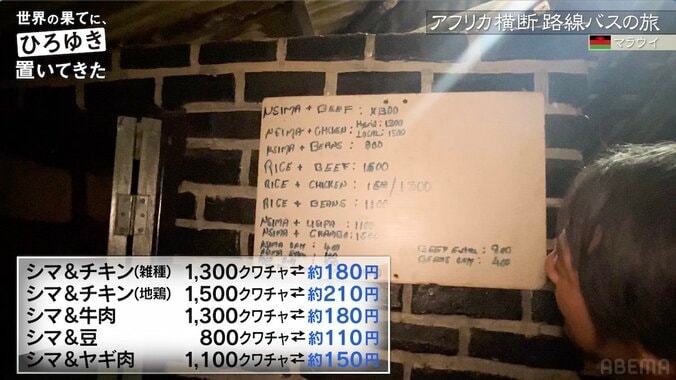 世界の果てに、
ひろゆき
置いてきた
アフリカ横断 路線バスの旅
マラウイ
NSIMA + BEEF: 1300
NSIMA + CHICKEN: 1300
LOCAL: 1500
NSIMA + BEANS: 800
RICE + BEEF: 1500
RICE + CHICKEN: /1300
RICE + BEANS: 1100
NSIMA + 1100
NSIMA + CHAMBO:
400
900
BEANS ONLY: 400
シマ&チキン(雑種) 1,300クワチャ⇄約180円
シマ&チキン(地鶏) 1,500クワチャ⇄約210円
シマ&牛肉 1,300クワチャ⇄約180円
シマ&豆 800クワチャ⇄約110円
シマ&ヤギ肉 1,100クワチャ⇄約150円
ABEMA